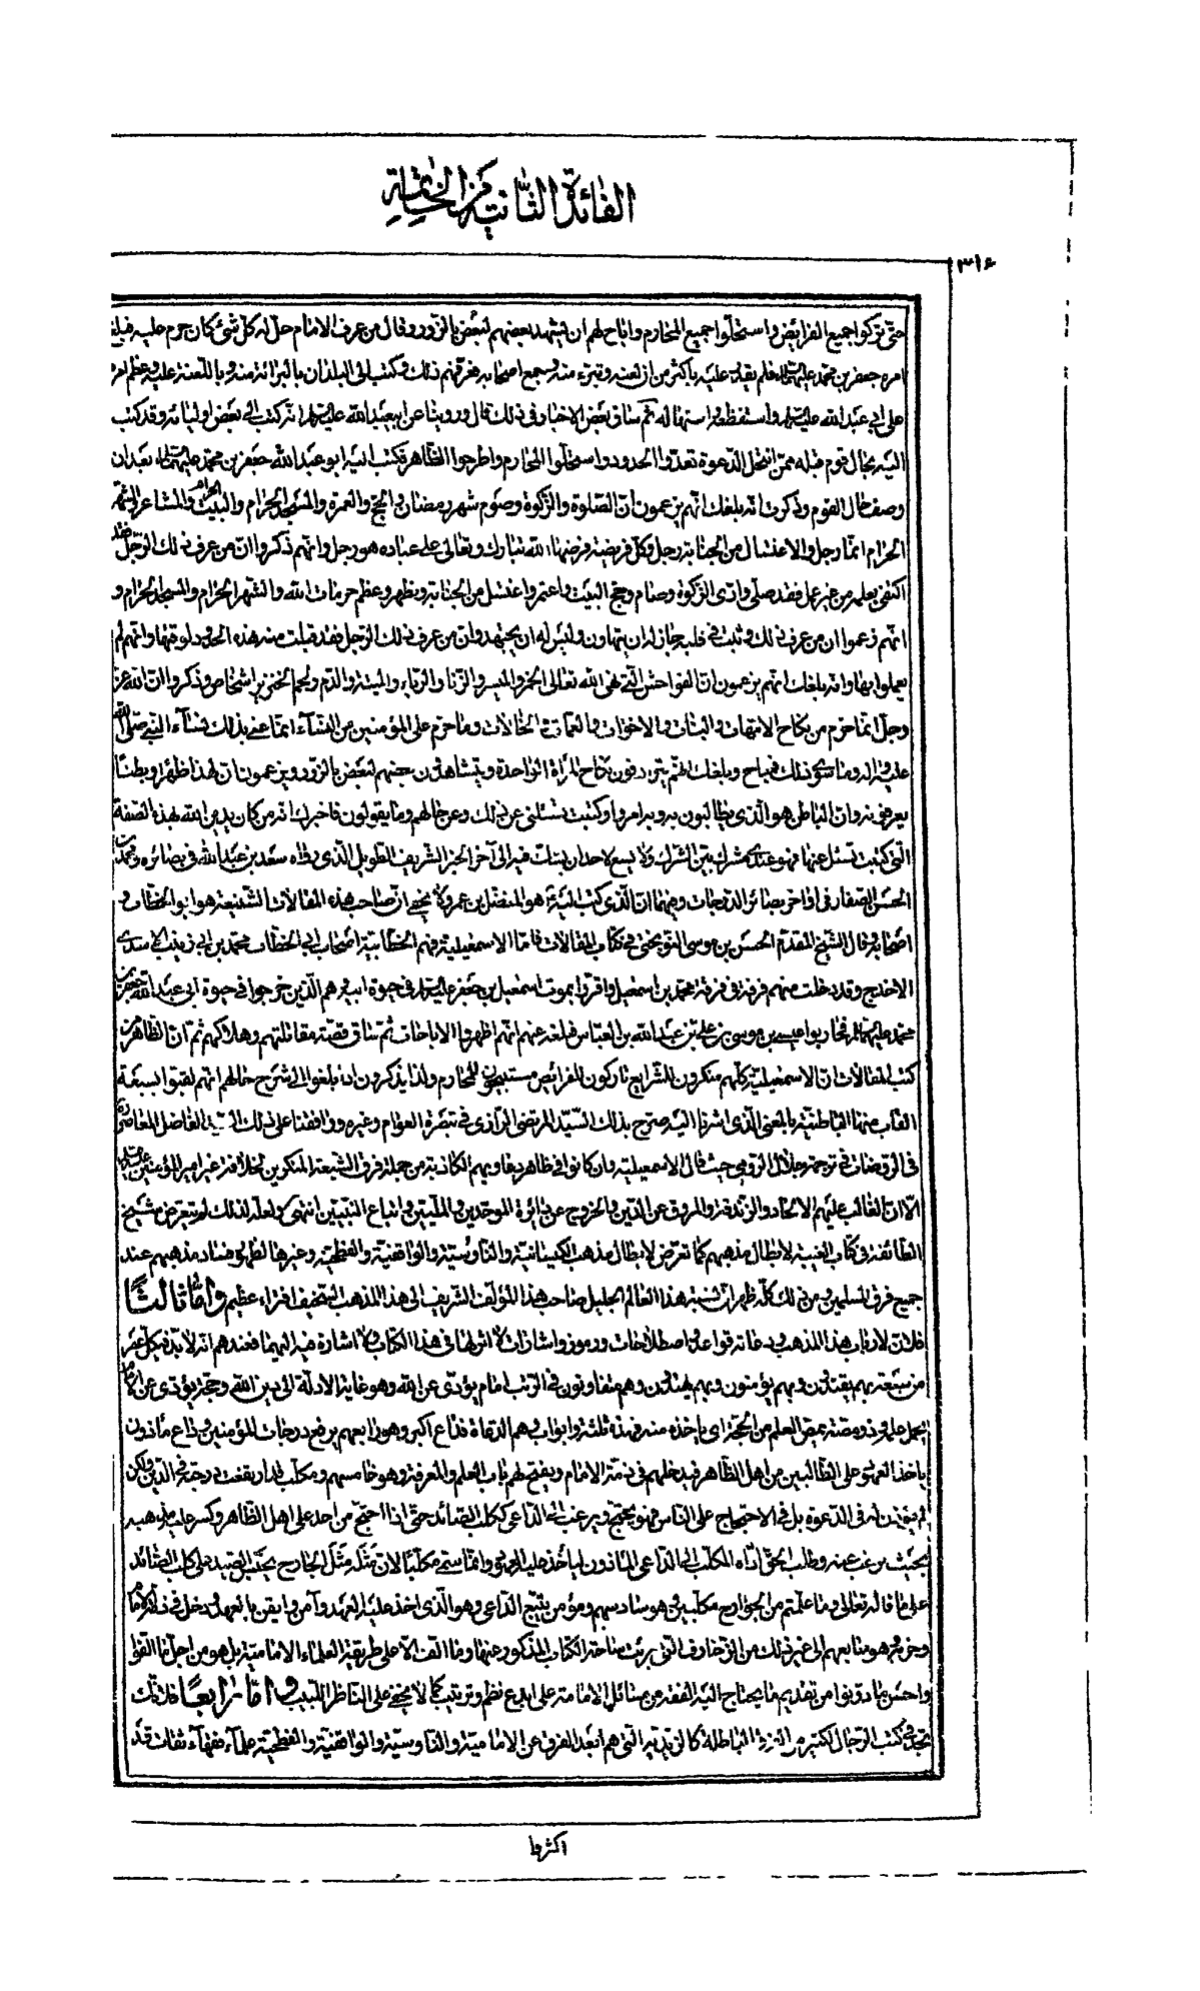 الفائدة الثانية من الخاتمة
٣١٤
حتى تركوا جميع الفرائض واستحلوا جميع المحارم واباح لهم ان يشهد بعضهم لبعض بالزور وقال من عرف الامام حل له كل شئ كان حرم عليه فبلغ
امره جعفر بن محمد عليهما السلام فلم يقدر عليه باكثر من ان لعنه وتبرء منه وجمع اصحابه فعرفهم ذلك وكتب الى البلدان بالبرائة منه وباللعنة عليه وعظم امره
على ابي عبد الله عليه السلام واستفظعه واستهاله ثم ساق بعض الاخبار في ذلك قال وروينا عن ابيعبد الله عليه السلام انه كتب الى بعض اوليائه وقد كتب
اليه بحال قوم قبله ممن انتحل الدعوة تعدوا الحدود واستحلوا المحارم واطرحوا الظاهر فكتب اليه ابو عبد الله جعفر بن محمد عليهما السلام بعد ان
وصف حال القوم وذكرت انه بلغك انهم يزعمون ان الصلوة والزكوة وصوم شهر رمضان والحج والعمرة والمسجد الحرام والبيت الحرام والمشاعر والشهر
الحرام انما رجل والاغتسال من الجنابة رجل وكل فريضة فرضها الله تبارك وتعالى على عباده هو رجل وانهم ذكروا ان من عرف ذلك الرجل فقد
اكتفى بعلمه من غير عمل فقد صلى وادى الزكوة وصام وحج البيت واعتمر واغتسل من الجنابة وتطهر وعظم حرمات الله والشهر الحرام والمسجد الحرام و
انهم زعموا ان من عرف ذلك وثبت في قلبه جاز له ان يتهاون وليس له ان يجتهد وان من عرف ذلك الرجل فقد قبلت منه هذه الحدود لوقتها وانهم لم
يعملوا بها وانه بلغك انهم يزعمون ان الفواحش التي نهى الله تعالى الخمر والميسر والزنا والرباء والميتة والدم ولحم الخنزير اشخاص وذكروا ان الله عز
وجل انما حرم من نكاح الامهات والبنات والاخوات والعمات والخالات وما حرم على المؤمنين من النساء انما عنى بذلك نساء النبي صلى الله
عليه واله وما سوى ذلك فمباح وبلغك انهم يترادفون نكاح المراة الواحدة ويتشاهدون بعضهم لبعض بالزور ويزعمون ان لهذا ظهرا وبطنا
يعرفونه وان الباطن هو الذي يطالبون به وبه امروا وكتبت تسئلني عن ذلك وعن حالهم وما يقولون فاخبرك انه من كان يدين الله بهذه الصفة
التي كتبت تسئل عنها فهو عندي مشرك بين الشرك ولا يسع لاحد ان يشك فيه الى آخر الخبر الشريف الطويل الذي رواه سعد بن عبد الله في بصائره ومحمد بن
الحسن الصفار في اواخر بصائر الدرجات وفيهما ان الذي كتب اليه هو المفضل بن عمر ولا يخفى ان صاحب هذه المقالات الشنيعة هو ابو الخطاب و
اصحابه وقال الشيخ المقدم الحسن بن موسى النوبختي في كتاب المقالات فاما الاسمعيلية فهم الخطابية اصحاب ابي الخطاب محمد بن ابي زينب الاسدي
الاجدع وقد دخلت منهم فرقة في فرقة محمد بن اسمعيل واقروا بموت اسمعيل بن جعفر عليه السلام في حيوة ابيه وهم الذين خرجوا في حيوة ابي عبد الله جعفر بن
محمد عليهما السلام فحاربوا عيسى بن موسى بن علي بن عبد الله بن العباس فبلغه عنهم انهم اظهروا الاباحات ثم ساق قصة مقاتلتهم وهلاكهم ثم ان الظاهر من
كتب المقالات ان الاسمعيلية كلهم منكرون للشرايع تاركون للفرائض مستبيحون للمحارم ولذا يذكرون اذا بلغوا الى شرح حالهم انهم لقبوا بسبعة
القاب منها الباطنية بالمعنى الذي اشرنا اليه صرح بذلك السيد المرتضى الرازي في تبصرة العوام وغيره ووافقنا على ذلك الفاضل المعاصر
في الروضات في ترجمة جلال الرومي حيث قال الاسمعيلية وان كانوا في ظاهر دعاويهم الكاذبة من جملة فرق الشيعة المنكرين لخلافة غير امير المؤمنين عليه السلام
الا ان الغالب عليهم الالحاد والزندقة والمروق عن الدين والخروج عن دائرة الموحدين والمليين واتباع النبيين انتهى ولعله لذلك لم يتعرض شيخ
الطائفة في كتاب الغيبة لابطال مذهبهم كما تعرض لابطال مذهب الكيسانية والناوسية والواقفية والفطحية وغيرها لظهور فساد مذهبهم عند
جميع فرق المسلمين ومن ذلك كله ظهر ان نسبة هذا العالم الجليل صاحب هذا المؤلف الشريف الى هذا المذهب السخيف افتراء عظيم واما ثالثا
فلان لارباب هذا المذهب ودعاته قواعد واصطلاحات ورموز واشارات لا اثر لها في هذا الكتاب ولا اشارة فيه اليها فعندهم انه لا بد في كل عصر
من سبعة بهم يقتدون وبهم يؤمنون وبهم يهتدون وهم متفاوتون في الرتب امام يؤدي عن الله وهو غاية الادلة الى دين الله وحجة يؤدي عن الامام
يحمل علمه وذو مصة يمص العلم من الحجة اي ياخذه منه فهذه ثلثة وابواب وهم الدعاة فداع اكبر وهو رابعهم يرفع درجات المؤمنين وداع ماذون
ياخذ العهود على الطالبين من اهل الظاهر فيدخلهم في ذمة الامام ويفتح لهم باب العلم والمعرفة وهو خامسهم ومكلب قد ارتفعت درجته في الدين ولكن
لم يؤذن له في الدعوة بل في الاحتجاج على الناس فهو يحتج ويرغب الى الداعي ككلب الصائد حتى اذا احتج من احد على اهل الظاهر وكسر عليه مذهبه
بحيث رغب عنه وطلب الحق اداه المكلب الى الداعي الماذون لياخذ عليه العهود وانما سمي مكلبا لان مثله مثل الجارح يحبس الصيد على كلب الصائد
على ما قال تعالى وما علمتم من الجوارح مكلبين وهو سادسهم ومؤمن يتبع الداعي وهو الذي اخذ عليه العهد وآمن وايقن بالعهد ودخل في ذمة الامام
وحزبه وهو سابعهم الى غير ذلك من الزخارف التي برئت ساحة الكتاب المذكور عنها وما الفه الا على طريقة العلماء الامامية بل هو من اجل ما الفوا
واحسن ما دونوا من تقديم ما يحتاج اليه الفقه من مسائل الامامة على ابدع نظم وترتيب كما لا يخفى على الناظر اللبيب واما رابعا فلانك
تجد في كتب الرجال لكثير من الفرق الباطلة كالزيدية التي هم ابعد الفرق عن الامامية والناوسية والواقفية والفطحية علماء فقهاء ثقات قد
اكثروا